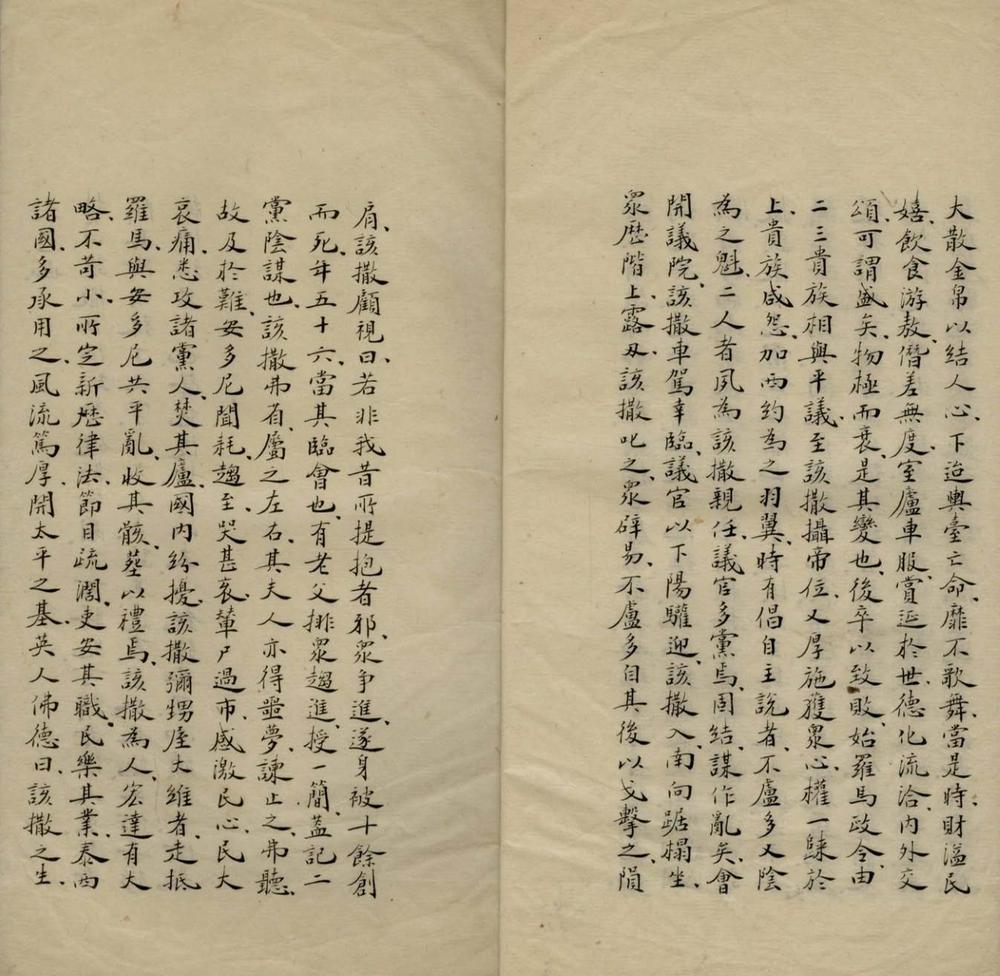 大散金帛以結人心、下迨輿臺亡命、靡不歌舞、當是時、財溢民
嬉、飲食游敖、僭差無度、室廬車服、賞延於世、德化流洽、內外交
頌、可謂盛矣、物極而衰、是其變也、後卒以致敗、始羅馬政令、由
二三貴族相與平議、至該撒攝帝位、又厚施獲衆心、權一歸於
上、貴族咸怨、加西約為之羽翼、時有倡自主說者、不盧多又陰
為之魁、二人者夙為該撒親任、議官多黨焉、固結謀作亂矣、會
開議院、該撒車駕幸臨、議官以下陽驩迎、該撒入、南向踞榻坐、
衆歷階上、露刃、該撒叱之、衆辟易、不盧多自其後以戈擊之、隕
肩、該撒顧視曰、若非我昔所提抱者邪、衆争進、遂身被十餘創
而死、年五十六、當其臨會也、有老父排衆趨進、授一簡、蓋記二
黨陰謀也、該撒弗省、屬之左右、其夫人亦得噩夢、諫止之、弗聽、
故及於難、安多尼聞耗、趨至、哭甚哀、輦尸過市、感激民心、民大
哀痛、悉攻諸黨人、焚其廬、國內紛擾、該撒彌甥屋大維者、走抵
羅馬、與安多尼共平亂、收其骸、葬以禮焉、該撒為人、宏達有大
略、不苛小、所定新歷律法、節目疏濶、吏安其職、民樂其業、泰西
諸國、多承用之、風流篤厚、開太平之基、英人佛德曰、該撒之生、